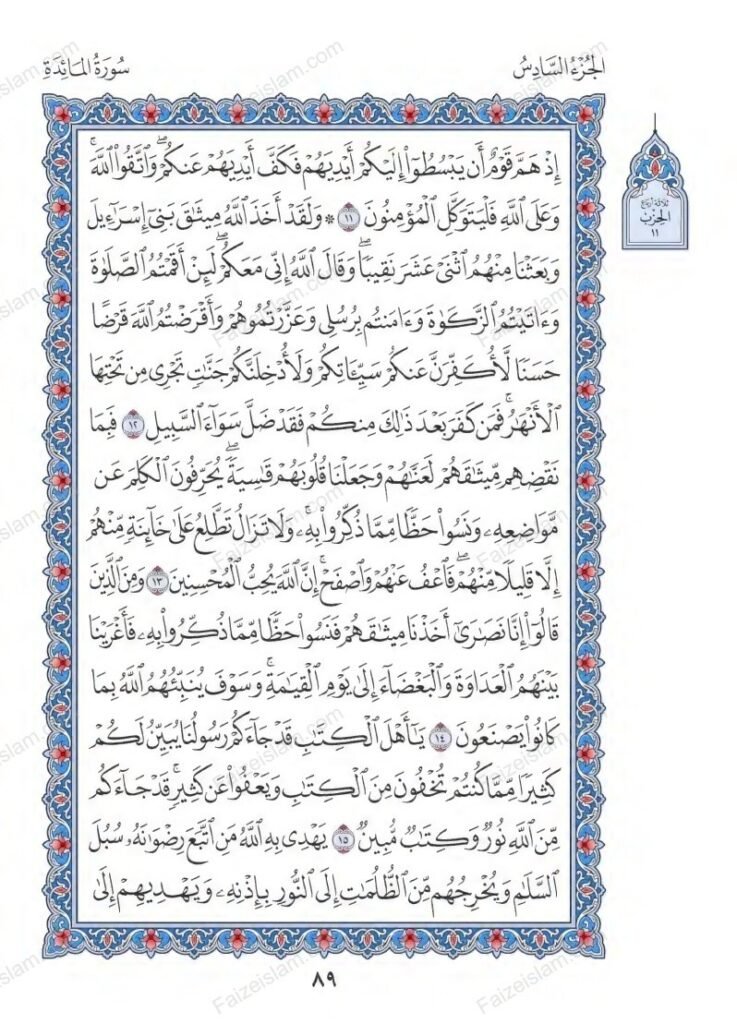 الجُزْءُ السَّادِسُ
سُورَةُ المَائِدَةِ
إِذْ هَمَّ قَوْمٌ أَن يَبْسُطُوٓا۟ إِلَيْكُمْ أَيْدِيَهُمْ فَكَفَّ أَيْدِيَهُمْ عَنكُمْ ۖ وَٱتَّقُوا۟ ٱللَّهَ ۚ
وَعَلَى ٱللَّهِ فَلْيَتَوَكَّلِ ٱلْمُؤْمِنُونَ ١١ ۞ وَلَقَدْ أَخَذَ ٱللَّهُ مِيثَٰقَ بَنِىٓ إِسْرَٰٓءِيلَ
وَبَعَثْنَا مِنْهُمُ ٱثْنَىْ عَشَرَ نَقِيبًا ۖ وَقَالَ ٱللَّهُ إِنِّى مَعَكُمْ ۖ لَئِنْ أَقَمْتُمُ ٱلصَّلَوٰةَ
وَءَاتَيْتُمُ ٱلزَّكَوٰةَ وَءَامَنتُم بِرُسُلِى وَعَزَّرْتُمُوهُمْ وَأَقْرَضْتُمُ ٱللَّهَ قَرْضًا
حَسَنًا لَّأُكَفِّرَنَّ عَنكُمْ سَيِّـَٔاتِكُمْ وَلَأُدْخِلَنَّكُمْ جَنَّٰتٍ تَجْرِى مِن تَحْتِهَا
ٱلْأَنْهَٰرُ ۚ فَمَن كَفَرَ بَعْدَ ذَٰلِكَ مِنكُمْ فَقَدْ ضَلَّ سَوَآءَ ٱلسَّبِيلِ ١٢ فَبِمَا
نَقْضِهِم مِّيثَٰقَهُمْ لَعَنَّٰهُمْ وَجَعَلْنَا قُلُوبَهُمْ قَٰسِيَةً ۖ يُحَرِّفُونَ ٱلْكَلِمَ عَن
مَّوَاضِعِهِۦ ۙ وَنَسُوا۟ حَظًّا مِّمَّا ذُكِّرُوا۟ بِهِۦ ۚ وَلَا تَزَالُ تَطَّلِعُ عَلَىٰ خَآئِنَةٍ مِّنْهُمْ
إِلَّا قَلِيلًا مِّنْهُمْ ۖ فَٱعْفُ عَنْهُمْ وَٱصْفَحْ ۚ إِنَّ ٱللَّهَ يُحِبُّ ٱلْمُحْسِنِينَ ١٣ وَمِنَ ٱلَّذِينَ
قَالُوٓا۟ إِنَّا نَصَٰرَىٰٓ أَخَذْنَا مِيثَٰقَهُمْ فَنَسُوا۟ حَظًّا مِّمَّا ذُكِّرُوا۟ بِهِۦ فَأَغْرَيْنَا
بَيْنَهُمُ ٱلْعَدَاوَةَ وَٱلْبَغْضَآءَ إِلَىٰ يَوْمِ ٱلْقِيَٰمَةِ ۚ وَسَوْفَ يُنَبِّئُهُمُ ٱللَّهُ بِمَا
كَانُوا۟ يَصْنَعُونَ ١٤ يَٰٓأَهْلَ ٱلْكِتَٰبِ قَدْ جَآءَكُمْ رَسُولُنَا يُبَيِّنُ لَكُمْ
كَثِيرًا مِّمَّا كُنتُمْ تُخْفُونَ مِنَ ٱلْكِتَٰبِ وَيَعْفُوا۟ عَن كَثِيرٍ ۚ قَدْ جَآءَكُم
مِّنَ ٱللَّهِ نُورٌ وَكِتَٰبٌ مُّبِينٌ ١٥ يَهْدِى بِهِ ٱللَّهُ مَنِ ٱتَّبَعَ رِضْوَٰنَهُۥ سُبُلَ
ٱلسَّلَٰمِ وَيُخْرِجُهُم مِّنَ ٱلظُّلُمَٰتِ إِلَى ٱلنُّورِ بِإِذْنِهِۦ وَيَهْدِيهِمْ إِلَىٰ
ثلاثة أرباع
الحزب
١١
٨٩
Faizeislam.com